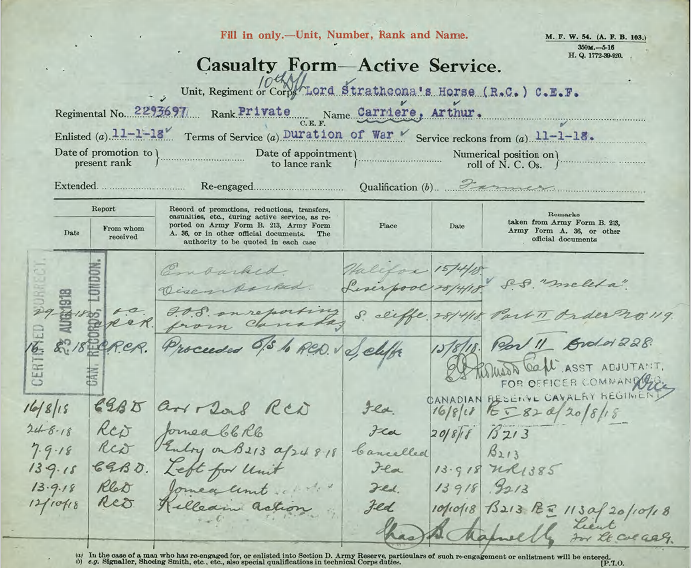 Fill in only.—Unit, Number, Rank and Name.
M. F. W. 54. (A. F. B. 103.)
350M.—5-16
H. Q. 1772-39-920.
Casualty Form—Active Service.
Unit, Regiment or Corps Lord Strathcona's Horse (R.C.) C.E.F.
Regimental No. 2293697 Rank Private Name Carriere, Arthur.
C. E. F.
Enlisted (a) 11-1-18 Terms of Service (a) Duration of War Service reckons from (a) 11-1-18.
Date of promotion to present rank Date of appointment to lance rank Numerical position on roll of N. C. Os.
Extended Re-engaged Qualification (b) Farmer
Report
Date
From whom received
Record of promotions, reductions, transfers, casualties, etc., during active service, as reported on Army Form B. 213, Army Form A. 36, or in other official documents. The authority to be quoted in each case
Place
Date
Remarks
taken from Army Form B. 213, Army Form A. 36, or other official documents
CERTIFIED CORRECT.
AUG 1918
CAN. RECORDS, LONDON.
Embarked Halifax 15/4/18
Disembarked Liverpool 28/4/18 S.S. "Melita"
T.O.S. on reporting from Canada S. cliffe 28/4/18 Part II Order No 119
8.18 C.R.C.R. Proceeded O/S to RCD. S. cliffe 15/8/18 Part II Order 228
Capt. ASST ADJUTANT,
FOR OFFICER COMMANDING
CANADIAN RESERVE CAVALRY REGIMENT
16/8/18 CGBD Arr & TOS RCD Fld 16/8/18 PII 82 d/20/8/18
24-8-18 RCD Joined CCRC Fld 20/8/18 B213
7.9.18 RCD Entry on B213 d/24.8.18 Cancelled B213
13.9.18 CGBD. Left for Unit Fld 13.9.18 NR1385
13.9.18 RCD Joined Unit Fld. 13 9 18 B213
12/10/18 RCD Killed in Action Fld 10/10/18 B213 PII 113 d/20/10/18
Chas B.
Lieut
for Lt Col AAG.
(a) In the case of a man who has re-engaged for, or enlisted into Section D. Army Reserve, particulars of such re-engagement or enlistment will be entered.
(b) e.g. Signaller, Shoeing Smith, etc., etc., also special qualifications in technical Corps duties.
[P.T.O.